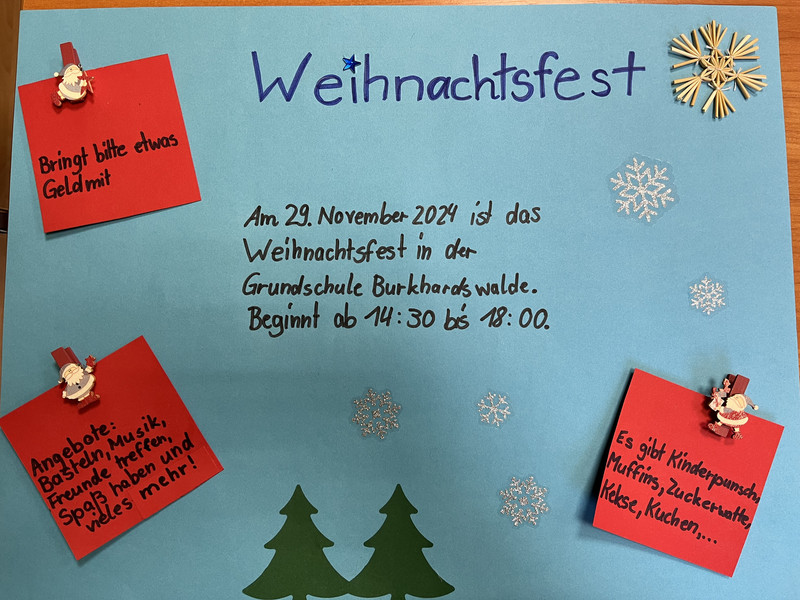 Weihnachtsfest
Bringt bitte etwas
Geld mit
Am 29. November 2024 ist das
Weihnachtsfest in der
Grundschule Burkhardswalde.
Beginnt ab 14:30 bis 18:00.
Angebote:
Basteln, Musik,
Freunde treffen,
Spaß haben und
vieles mehr!
Es gibt Kinderpunsch,
Muffins, Zuckerwatte,
Kekse, Kuchen,...